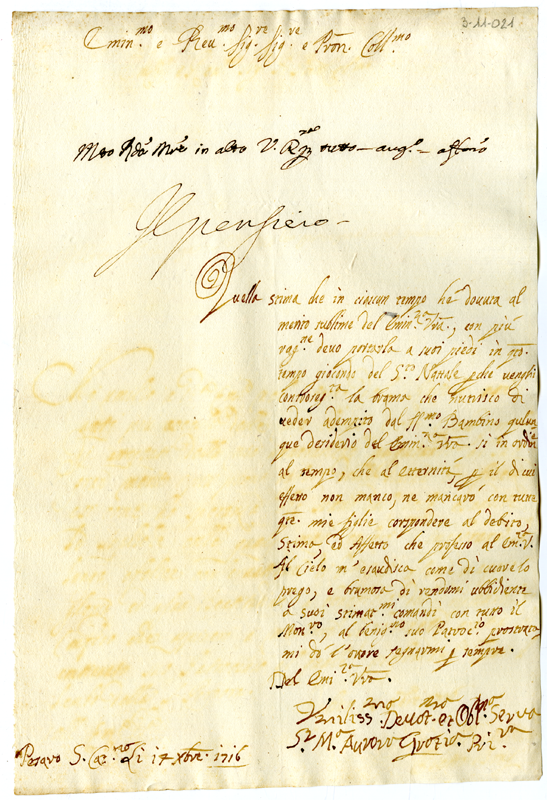 3-11-021
Emin.mo e Reu.mo Sig.re Sig.re e Pron. Coll.mo
in alto V.
Il pensiero
Quella stima che in ciascun tempo hè dovuta al
merito sublime del Emin.za Vra., con più
rag.ne devo portarla a suoi piedi in q.to
tempo giocondo del S.to Natale p che venghi
la brama che nutrisco di
veder adempito dal SS.mo Bambino qulun
que desiderio del Emin.za Vra. si in ordine
al tempo, che al Etternità, p il di cui
effetto non manco, ne mancarò con tutte
qte. mie figlie corispondere al debito,
stima, ed Affetto che professo al Em.za V.
Il Cielo m'esaudisca come di cuore lo
prego, e bramosa di rendermi ubbidiente
a suoi stimat.mi comandi con tutto il
Mon.ro, al benig.mo suo Patroc.io prostrata
mi dò l'onore segnarmi p sempre.
Del Emi.za Vra.
Vmiliss.ma Deuot.ma et Obl.ma Serua
S.r M.a Aurora Pri.ra
Pesaro S. Cat.na Li 17 Xbre. 1716